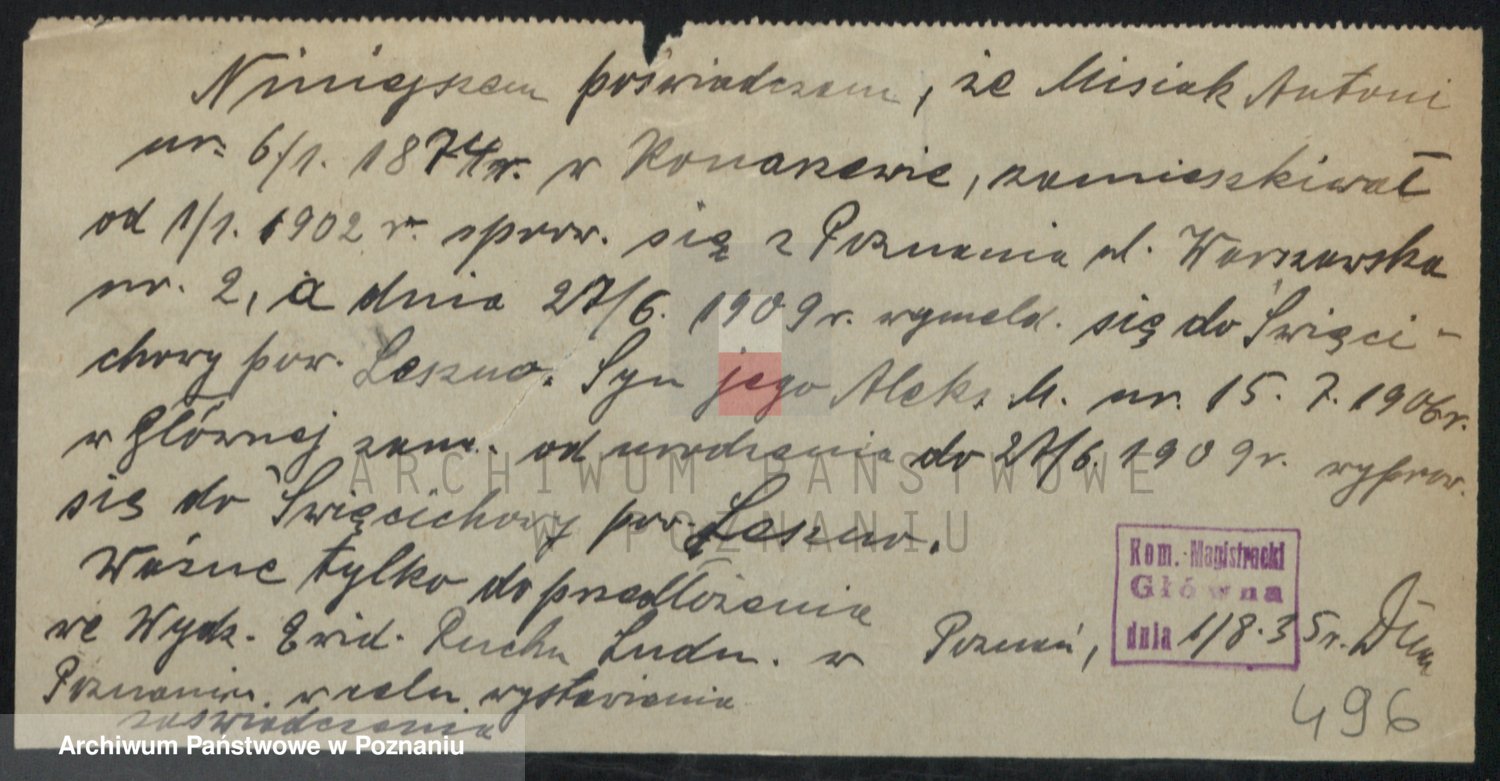 Niniejszem poświadczam, że Misiak Antoni
ur. 6/1. 1874r. w Konarzewie, zamieszkiwał
od 1/1. 1902 r. sprow. się z Poznania ul. Warszawska
nr. 2, a dnia 27/6. 1909r. wymeld. się do Święci-
chowy pow. Leszno. Syn jego Aleks. M. ur. 15. 7. 1906r.
w Głównej zam. od urodzenia do 27/6. 1909r. wyprow.
się do Święcichowy pow. Leszno.
Ważne tylko do przedłożenia
we Wydz. Ewid. Ruchu Ludn. w
Poznaniu w celu wystawienia
zaświadczenia
Poznań,
Kom.-Magistracki
Główna
dnia 1/8.35r.
496
ARCHIWUM PAŃSTWOWE
W POZNANIU
Archiwum Państwowe w Poznaniu